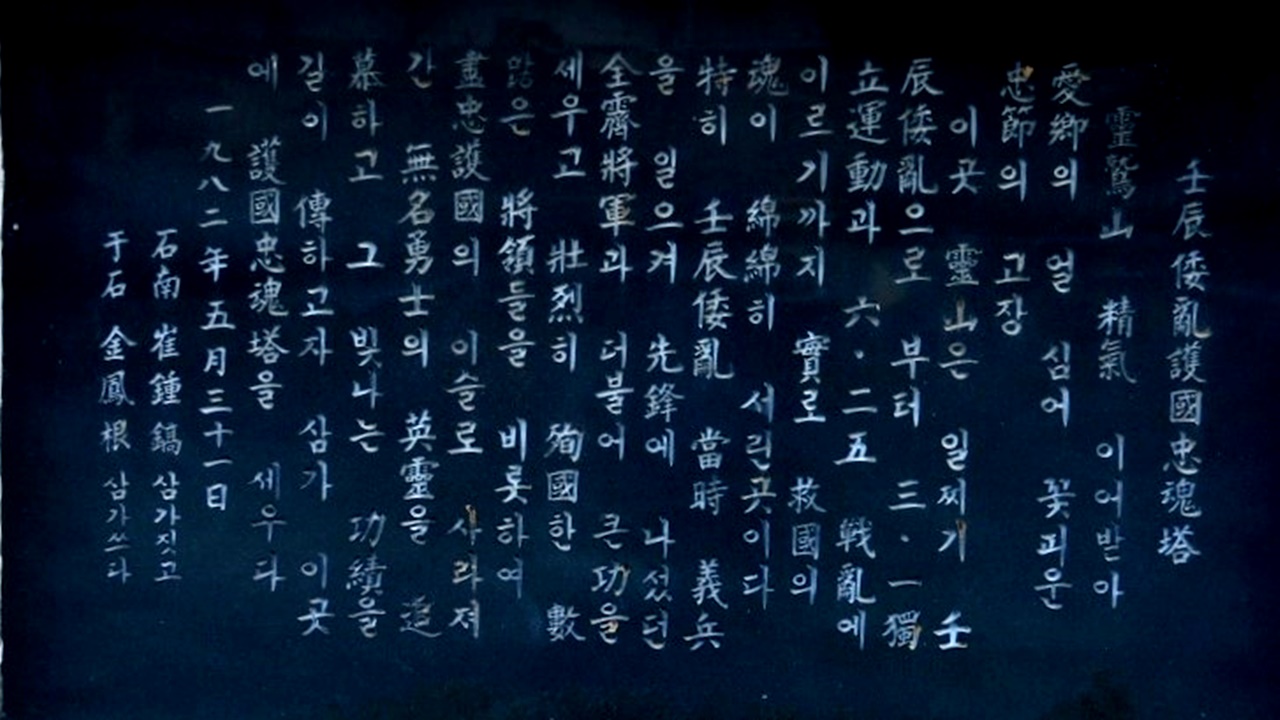 壬辰倭亂護國忠魂塔
靈鷲山 精氣 이어받아
愛鄉의 얼 심어 꽃피운
忠節의 고장
이곳 靈山은 일찌기 壬
辰倭亂으로 부터 三·一獨
立運動과 六·二五 戰亂에
이르기까지 實로 救國의
魂이 綿綿히 서린곳이다
特히 壬辰倭亂 當時 義兵
을 일으켜 先鋒에 나섰던
全霽將軍과 더불어 큰功을
세우고 壯烈히 殉國한 數
많은 將領들을 비롯하여
盡忠護國의 이슬로 사라져
간 無名勇士의 英靈을 追
慕하고 그 빛나는 功績을
길이 傳하고자 삼가 이곳
에 護國忠魂塔을 세우다
一九八二年五月三十一日
石南 崔鍾鎬 삼가짓고
于石 金鳳根 삼가쓰다